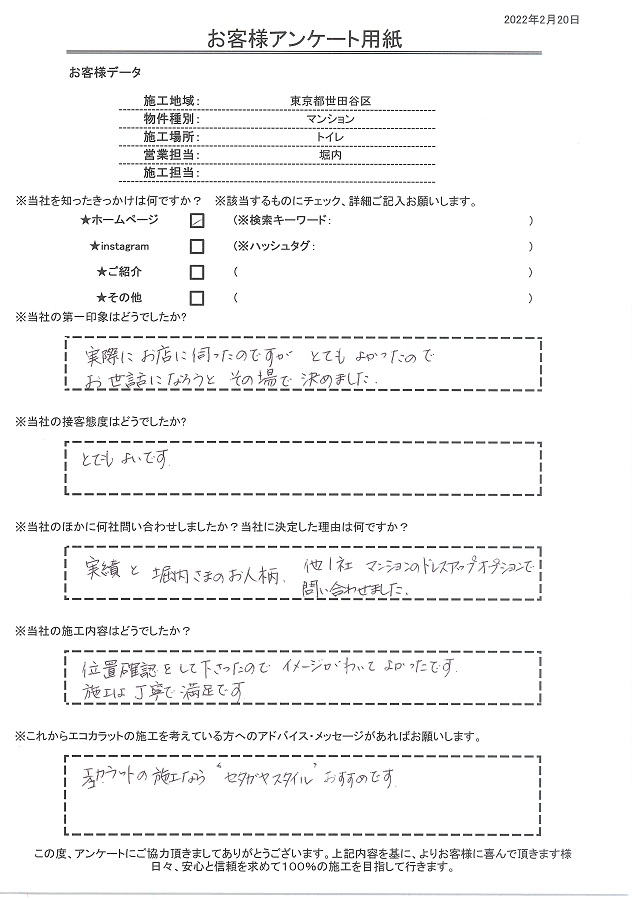 2022年2月20日
お客様アンケート用紙
お客様データ
施工地域： 東京都世田谷区
物件種別： マンション
施工場所： トイレ
営業担当： 堀内
施工担当：
※当社を知ったきっかけは何ですか？ ※該当するものにチェック、詳細ご記入お願いします。
★ホームページ ☑ （※検索キーワード： ）
★instagram □ （※ハッシュタグ： ）
★ご紹介 □ （ ）
★その他 □ （ ）
※当社の第一印象はどうでしたか？
実際にお店に伺ったのですが とてもよかったので
お世話になろうと その場で 決めました.
※当社の接客態度はどうでしたか？
とてもよいです.
※当社のほかに何社問い合わせしましたか？当社に決定した理由は何ですか？
実績と 堀内さまのお人柄. 他1社 マンションのドレスアップオプションで
問い合わせました.
※当社の施工内容はどうでしたか？
位置確認をして下さったので イメージがわいて よかったです.
施工は丁寧で満足です
※これからエコカラットの施工を考えている方へのアドバイス・メッセージがあればお願いします。
エコカラットの施工なら “セタガヤスタイル” おすすめです.
この度、アンケートにご協力頂きましてありがとうございます。上記内容を基に、よりお客様に喜んで頂きます様
日々、安心と信頼を求めて100％の施工を目指して行きます。